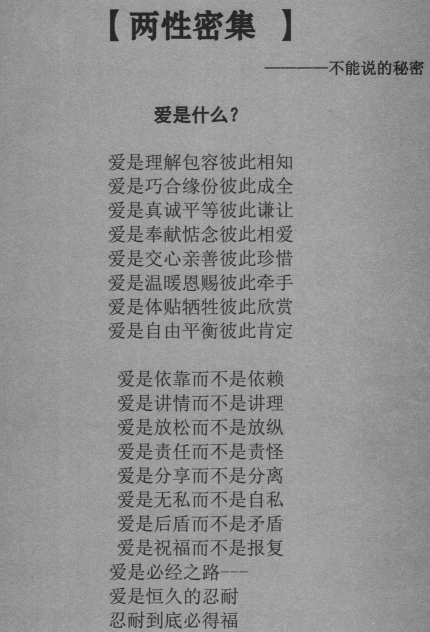 【两性密集 】
————不能说的秘密
爱是什么？
爱是理解包容彼此相知
爱是巧合缘份彼此成全
爱是真诚平等彼此谦让
爱是奉献惦念彼此相爱
爱是交心亲善彼此珍惜
爱是温暖恩赐彼此牵手
爱是体贴牺牲彼此欣赏
爱是自由平衡彼此肯定
爱是依靠而不是依赖
爱是讲情而不是讲理
爱是放松而不是放纵
爱是责任而不是责怪
爱是分享而不是分离
爱是无私而不是自私
爱是后盾而不是矛盾
爱是祝福而不是报复
爱是必经之路---
爱是恒久的忍耐
忍耐到底必得福